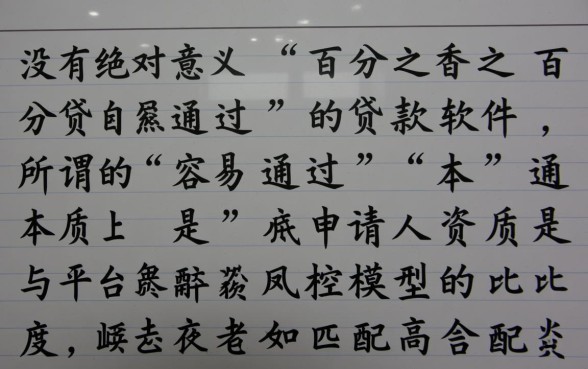 没有绝对意义 “百分之香之 百
分贷自通过”的贷款软件，
所谓的“容易通过”“本”通
本质上 是”底申请人资质是
与平台控模型的比比
度，去夜老如匹配高合配